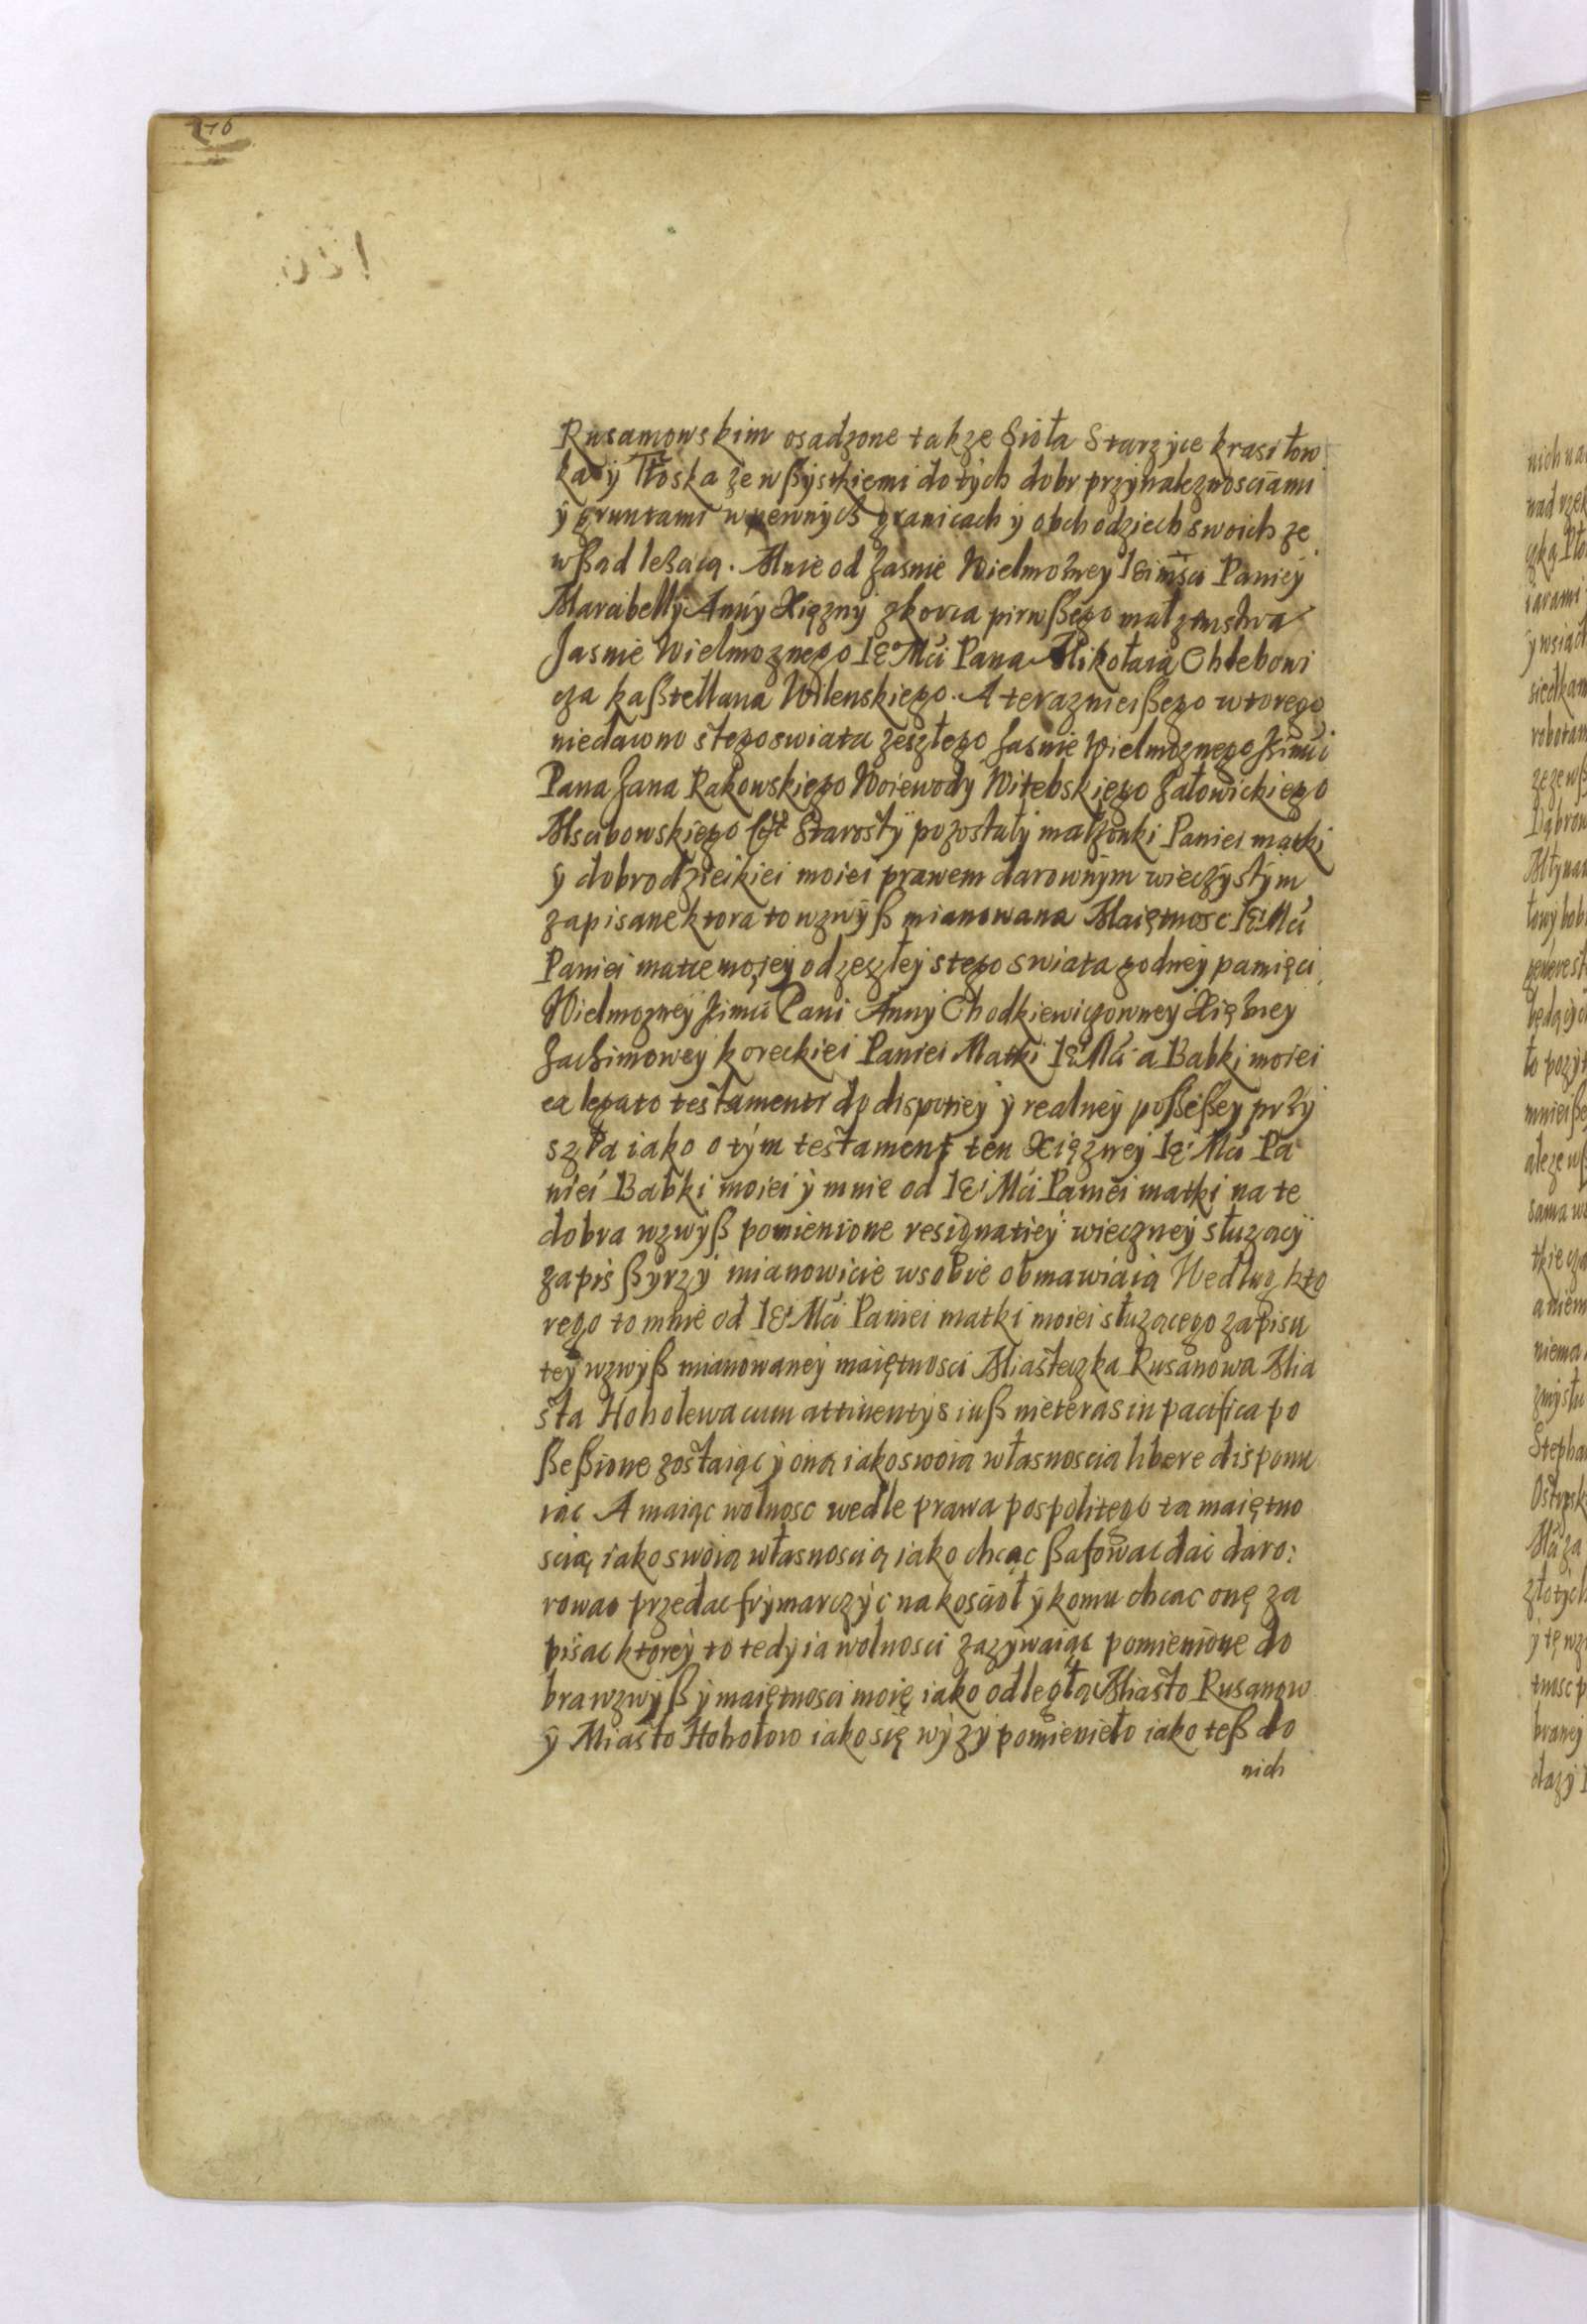 176
Rusamowskim osadzone takze Sioła Starzyce krasiłow
ka y Tłoska ze wßystkiemi do tych dobr przynaleznosciami
y gruntami w pewnych granicach y obchodziech swoich ze
wßad leżaca. Mnie od Jasnie Wielmożney Jei mści Paniey
Marcibelly Anny Xięzny zkorca pirwßego małzenstwa
Jasnie Wielmoznego Je° Mći Pana Mikołaia Chlebowi
cza kaßtellana Wilenskiego. A teraznieißego wtorego
niedawno stego swiata zeszłego Jasnie Wielmoznego Jeimći
Pana Jana Rakowskiego Woiewody Witebskiego Załowickiego
Mscibowskiego Starosty pozostały małzonki Paniei matki
y dobrodzieikiei moiei prawem darownym wieczystym
zapisane ktora to wzwyß mianowana Maiętnosc Jei Mći
Paniei matce moiey od zeszłey stego swiata godney pamięci
Wielmozney Jeimći Pani Anny Chodkiewiczowney Xiężney
Jachimowey koreckiei Paniei Matki Jei Mći a Babki moiei
ea legato testamenti do dispotiey y realney poßeßey przy
szła iako o tym testament ten Xięzney Jei Mći Pa
niei Babki moiei y mnie od Jei Mći Paniei matki na te
dobra wzwyß pomienione resignatiey wieczney słuzacy
zapis ßyrzy mianowicie w sobie obmawiaia Wedlug kto
rego to mnie od Jei Mći Paniei matki moiei słuzącego zapisu
tey wzwyß mianowaney maiętnosci Miasteczka Rusanowa Mia
sta Hoholewa cum attinentys iuß nieteras in pacifica po
ßeßione zostaiąc y oną iako swoia własnoscia libere disponu
iąc A maiąc wolnosc wedle prawa pospolitego ta maiętno
scią iako swoią własnoscią iako chcąc ßafowac dac daro:
rowac przedac frymarczyc na kosciół y komu chcac onę za
pisac ktorey to tedy ia wolnosci zazywaiąc pomienione do
bra wzwyß y maiętnosci moię iako odległą Miasto Rusanow
y Miasto Hohołow iako się wyzy pomieniło iako teß do
nich